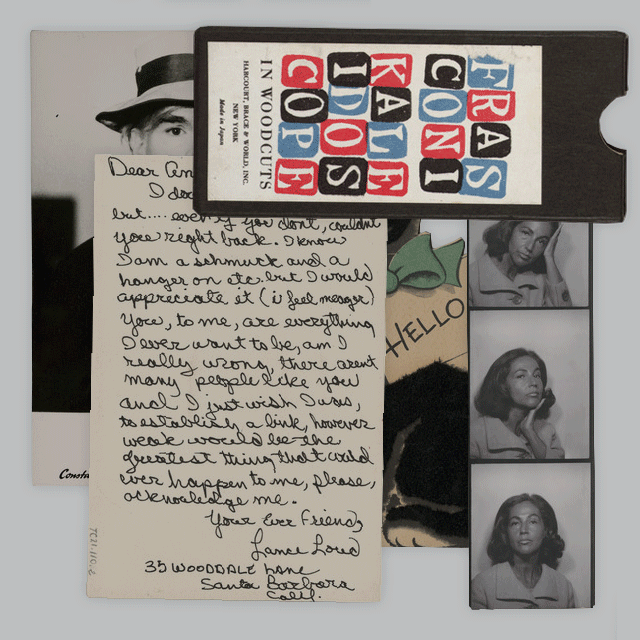 FRAS
CONI
KALE
IDOS
COPE
IN WOODCUTS
HARCOURT, BRACE & WORLD, INC.
NEW YORK
Made in Japan
Dear An
I do
but.... even if you dont, couldnt
you right back. I know
I am a schmuck and a
hanger on etc. but I would
appreciate it (i feel meager)
You, to me, are everything
I ever want to be, am I
really wrong, there arent
many people like you
and I just wish I was,
to establish a link, however
weak would be the
greatest thing that could
ever happen to me, please,
acknowledge me.
Your Ever Friend,
Lance Loud
35 WOODDALE LANE
Santa Barbara
Calif.
HELLO
Constu